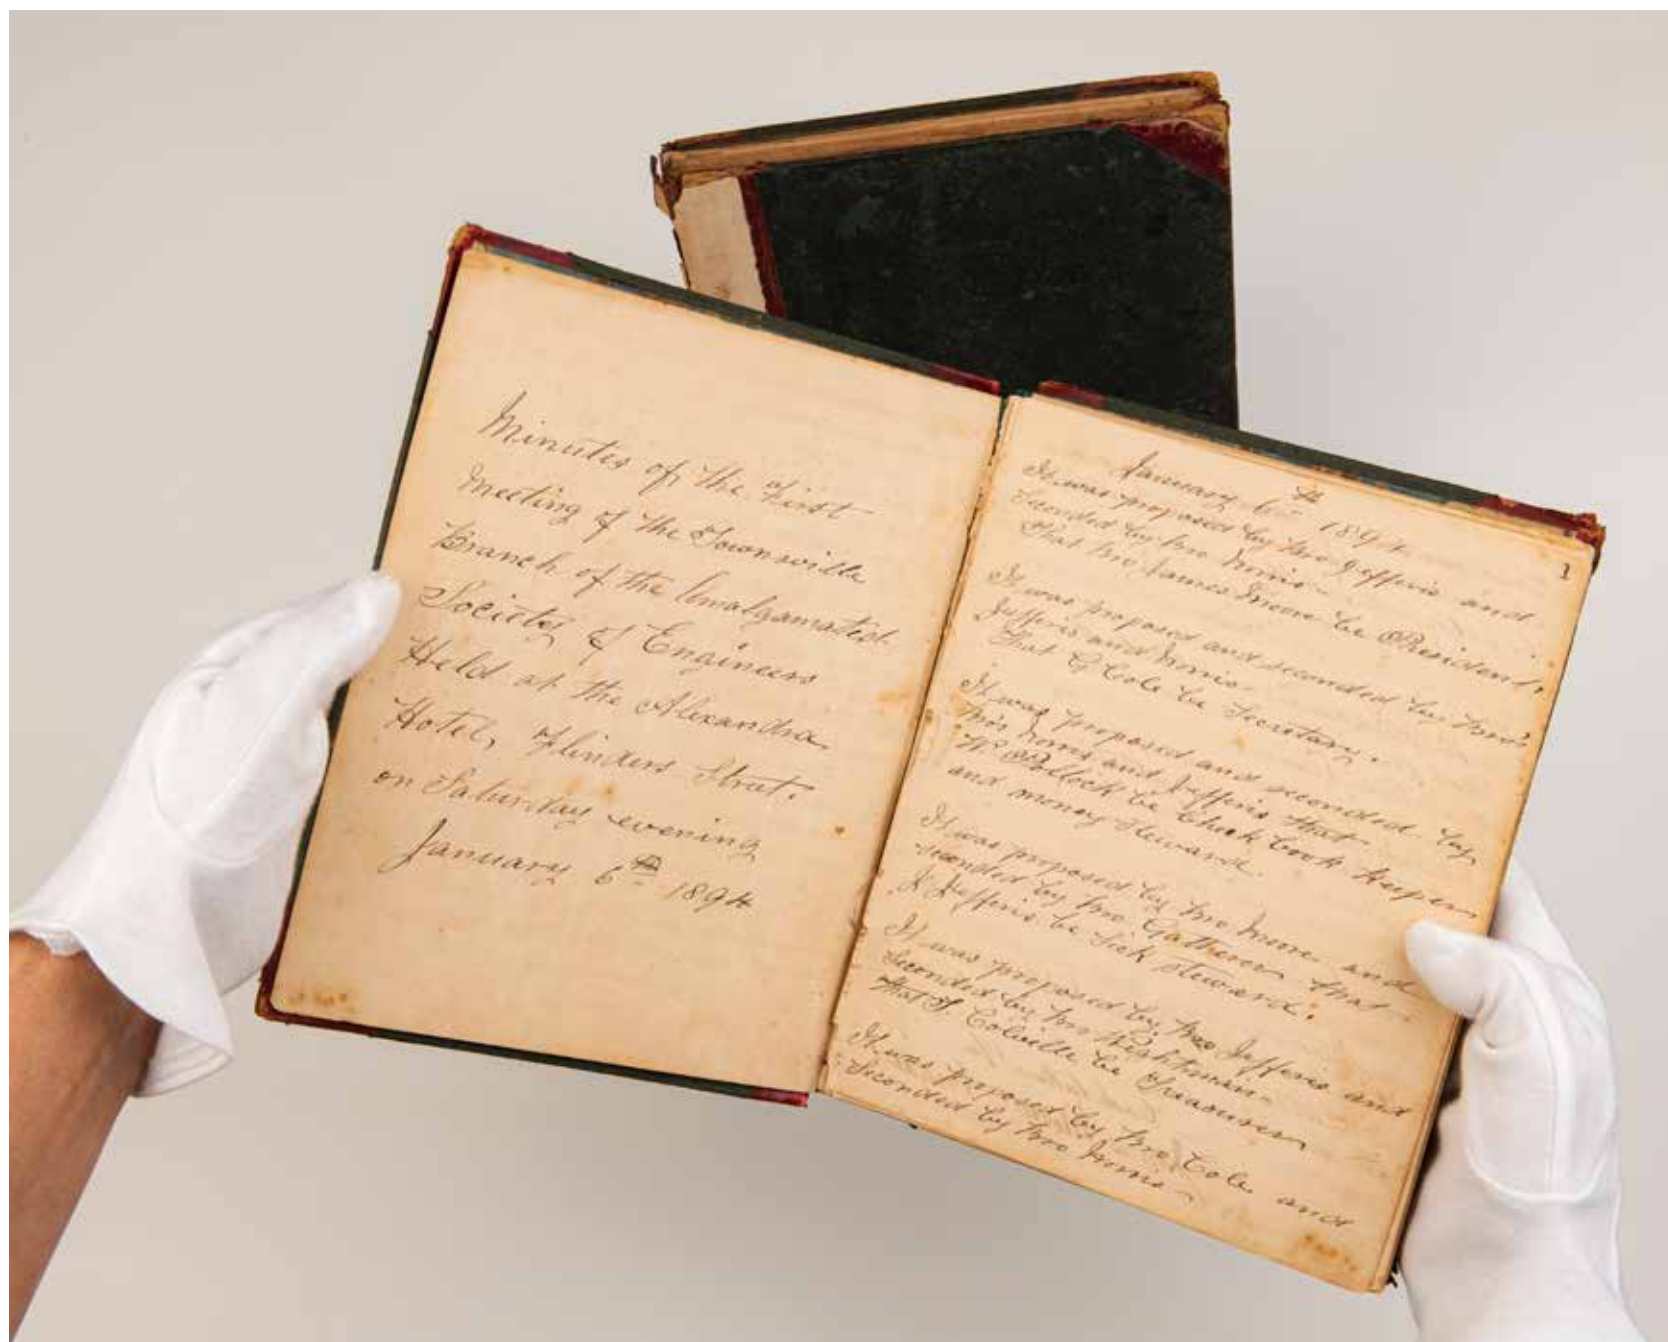 Minutes of the First
Meeting of the Townsville
Branch of the Amalgamated
Society of Engineers
Held at the Alexandra
Hotel, Flinders Street.
on Saturday evening
January 6th 1894
1
January 6th 1894
It was proposed by Bro Jefferis and
Seconded by Bro Norris
That Bro James Moore be President.
It was proposed and seconded by Bro's
Jefferis and Norris.
That G Cole be Secretary.
It was proposed and seconded by
Bro's Norris and Jefferis that
Wm Pollock be Check book keeper
and money steward.
It was proposed by Bro Moore and
seconded by Bro. Gatherer that
Jefferis be Sick steward.
It was proposed by Bro Jefferis and
Seconded by Bro
that J Colville be Treasurer
It was proposed by Bro Cole and
Seconded by Bro Norris